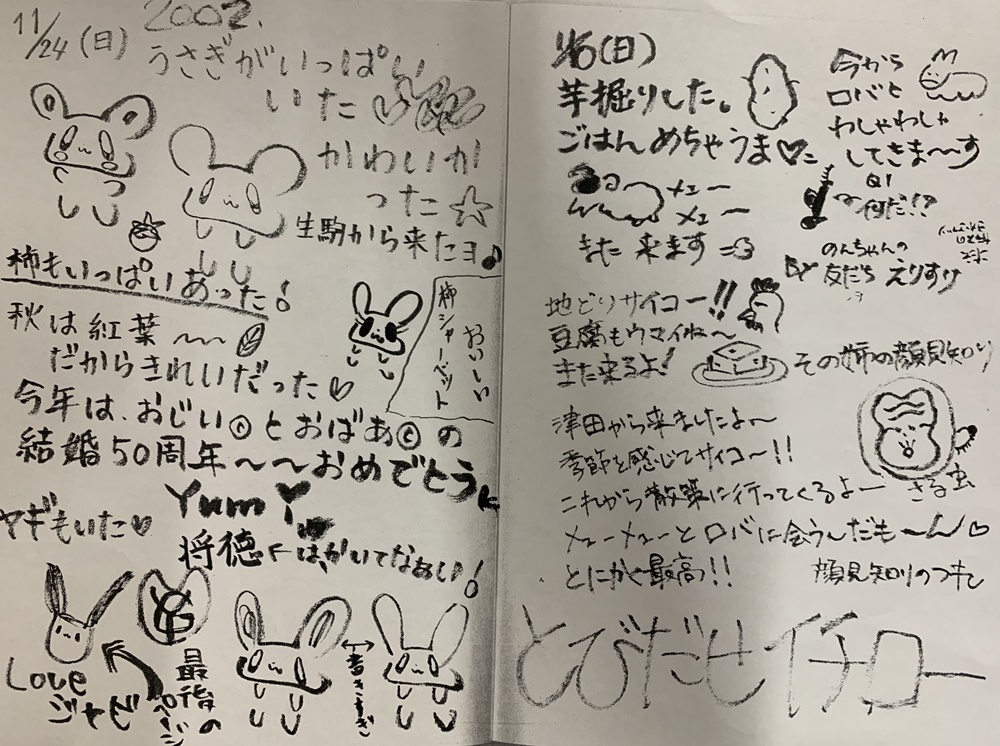 11/24(日) 2002.
うさぎがいっぱい
いた♡
かわいか
った☆
生駒から来たヨ♪
柿もいっぱいあった!
おいしい
柿シャーベット
秋は紅葉〜〜
だからきれいだった♡
今年は、おじいⓒとおばあⓒの
結婚50周年〜〜おめでとう
Yum Y
ヤギもいた♡
将徳←はかいてなぁい!
Love
ジャビ
最後の
ページ
(日)
芋掘りした。
ごはんめちゃうま♡
メェー
メェー
また来ます
今から
ロバと
わしゃわしゃ
してきま〜〜す
何だ!?
のんちゃんの
By 友だち えりすけ
地どりサイコー!!
豆腐もウマイねー
また来るよ!
その姉の顔見知り
津田から来ましたよ〜
季節を感じてサイコ〜!!
これから散策に行ってくるよー
さる虫
メェーメェーとロバに会うんだも〜ん♡
とにかく最高!!
顔見知りのつれ
とびだせイチロー